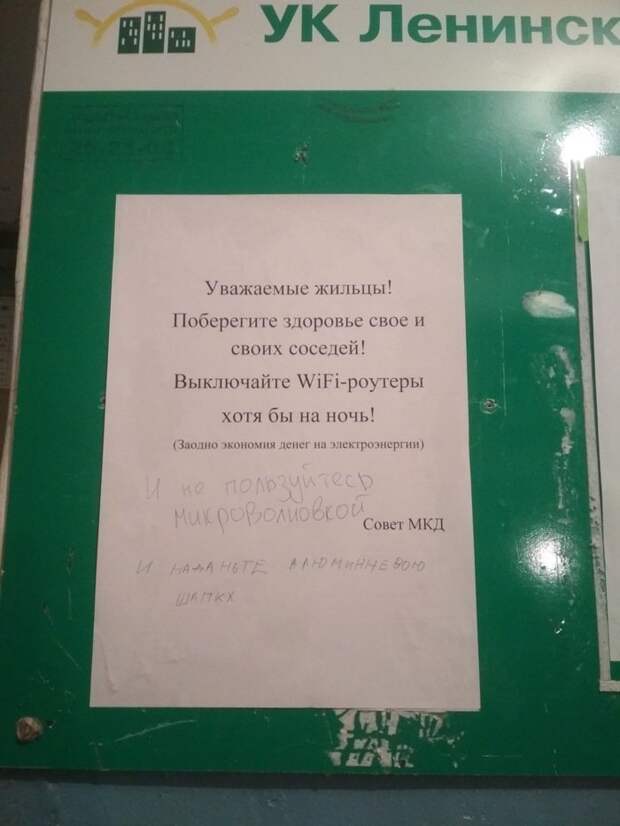 УК Ленинск
Уважаемые жильцы!
Поберегите здоровье свое и
своих соседей!
Выключайте WiFi-роутеры
хотя бы на ночь!
(Заодно экономия денег на электроэнергии)
И не пользуйтесь
микроволновкой
Совет МКД
И НАДЕНЬТЕ АЛЮМИНИЕВУЮ
ШАПКУ